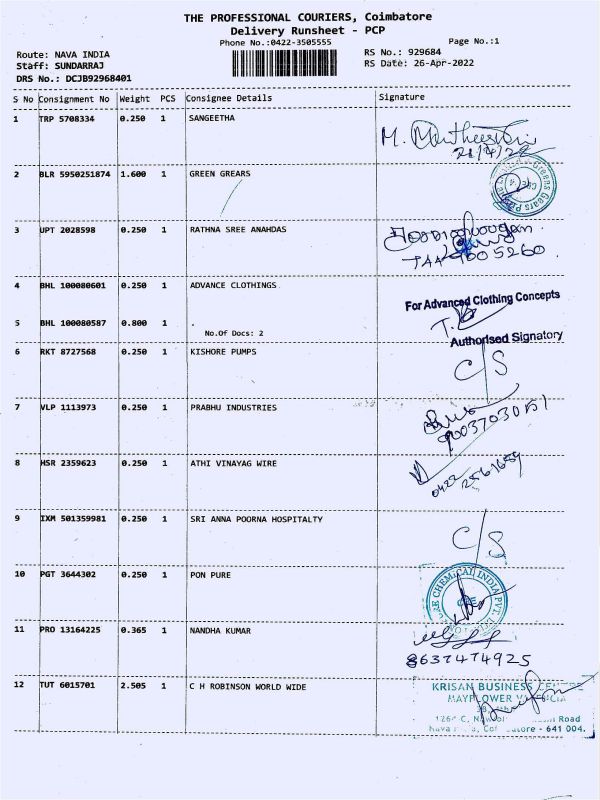 THE PROFESSIONAL COURIERS, Coimbatore
Delivery Runsheet - PCP
Phone No.:0422-3505555
Page No.:1
Route: NAVA INDIA
RS No.: 929684
Staff: SUNDARRAJ
RS Date: 26-Apr-2022
DRS No.: DCJB92968401
S No Consignment No Weight PCS Consignee Details Signature
1 TRP 5708334 0.250 1 SANGEETHA
M.
2 BLR 5950251874 1.600 1 GREEN GREARS
3 UPT 2028598 0.250 1 RATHNA SREE ANAHDAS
4 BHL 100080601 0.250 1 ADVANCE CLOTHINGS
For Advanced Clothing Concepts
5 BHL 100080587 0.800 1 .
No.Of Docs: 2
Authorised Signatory
6 RKT 8727568 0.250 1 KISHORE PUMPS
C/S
7 VLP 1113973 0.250 1 PRABHU INDUSTRIES
8 HSR 2359623 0.250 1 ATHI VINAYAG WIRE
0422
9 IXM 501359981 0.250 1 SRI ANNA POORNA HOSPITALTY
C/S
10 PGT 3644302 0.250 1 PON PURE
CHEMICAL INDIA PVT.
11 PRO 13164225 0.365 1 NANDHA KUMAR
8637474925
12 TUT 6015701 2.505 1 C H ROBINSON WORLD WIDE
KRISAN BUSINESS
MAYFLOWER
Road
641 004.